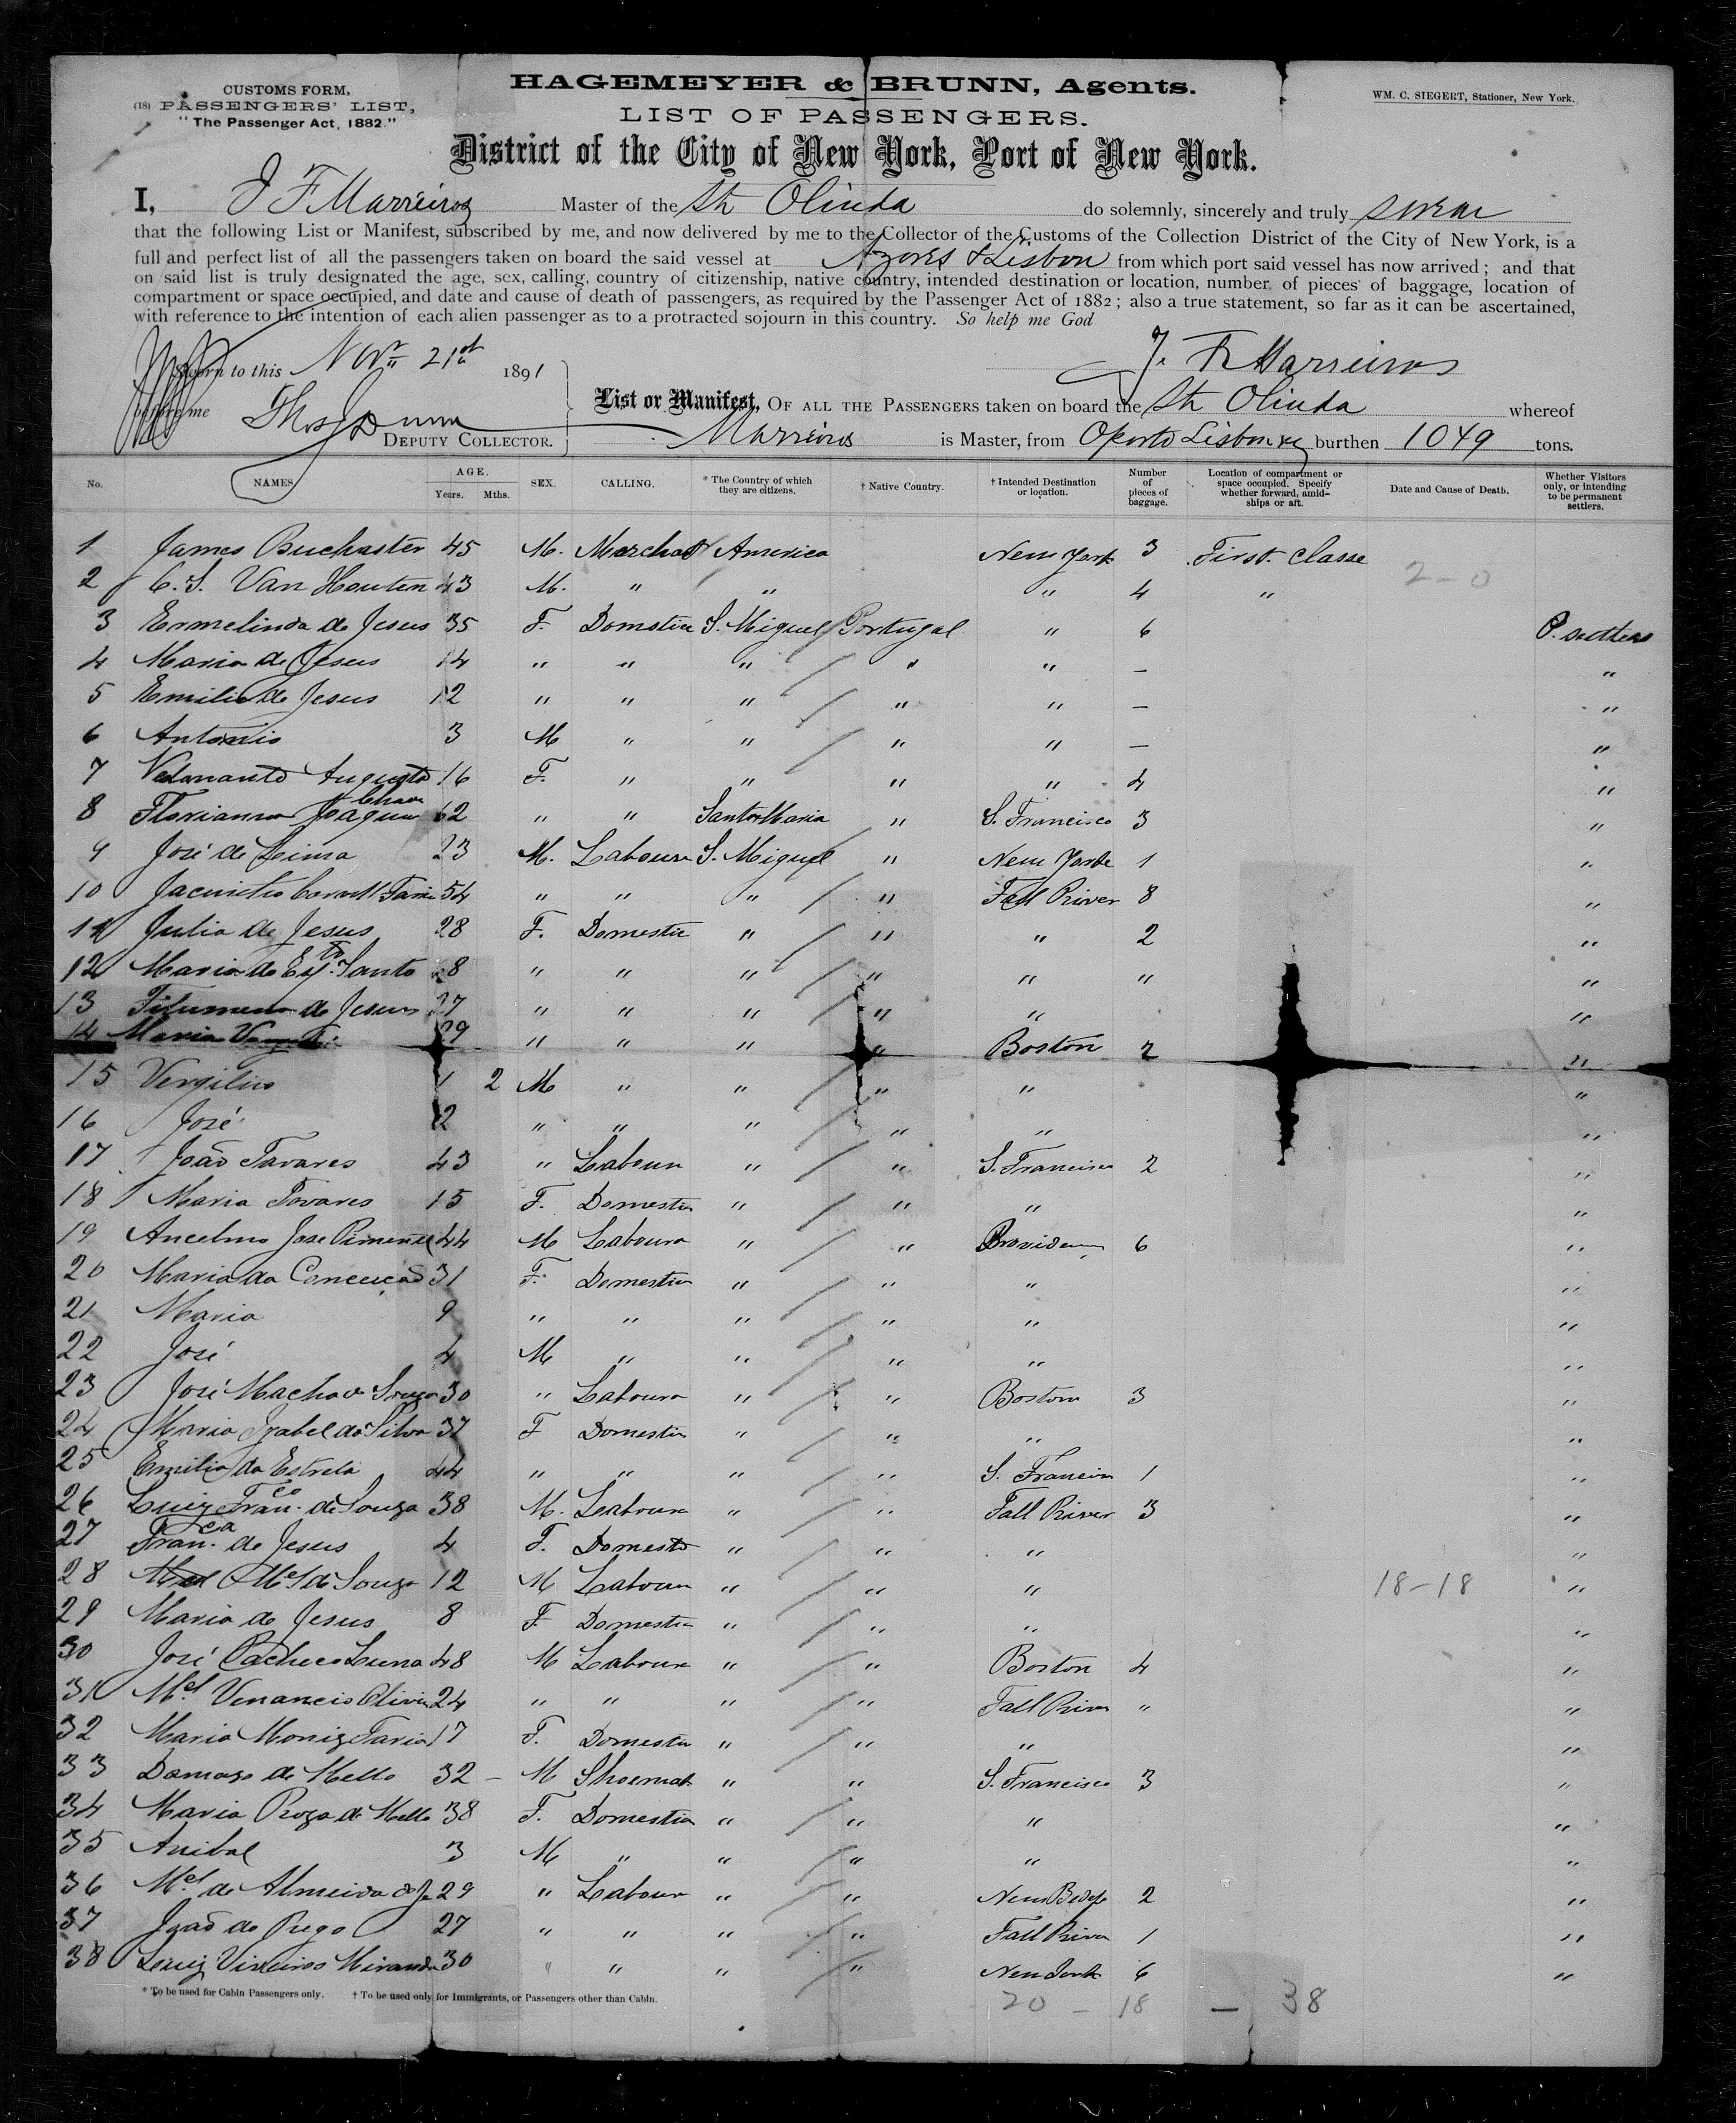 CUSTOMS FORM,
(18) PASSENGERS' LIST,
"The Passenger Act, 1882."
HAGEMEYER & BRUNN, Agents.
WM. C. SIEGERT, Stationer, New York.
LIST OF PASSENGERS.
District of the City of New York, Port of New York.
I, J F Marreiros Master of the Str Olinda do solemnly, sincerely and truly swear
that the following List or Manifest, subscribed by me, and now delivered by me to the Collector of the Customs of the Collection District of the City of New York, is a
full and perfect list of all the passengers taken on board the said vessel at Azores & Lisbon from which port said vessel has now arrived; and that
on said list is truly designated the age, sex, calling, country of citizenship, native country, intended destination or location, number of pieces of baggage, location of
compartment or space occupied, and date and cause of death of passengers, as required by the Passenger Act of 1882; also a true statement, so far as it can be ascertained,
with reference to the intention of each alien passenger as to a protracted sojourn in this country. So help me God
Sworn to this Novr 21st 1891
J. F. Marreiros
before me Thos J Dunn
DEPUTY COLLECTOR.
List or Manifest, OF ALL THE PASSENGERS taken on board the Str Olinda whereof
Marreiros is Master, from Oporto Lisbon burthen 1049 tons.
No. NAMES AGE. Years. Mths. SEX. CALLING. * The Country of which they are citizens. † Native Country. † Intended Destination or location. Number of pieces of baggage. Location of compartment or space occupied. Specify whether forward, amidships or aft. Date and Cause of Death. Whether Visitors only, or intending to be permanent settlers.
1 James Buchaster 45 M. Merchat America New York 3 First. Classe
2 C. S. Van Houten 43 M. " " " 4 " 2-0
3 Ermelinda de Jesus 35 F. Domstic S. Miguel Portugal " 6 P. settlers
4 Maria de Jesus 14 " " " " " — "
5 Emilia de Jesus 12 " " " " " — "
6 Antonio 3 M " " " " — "
7 Augusta 16 F. " " " " 4 "
8 Florianna Joaquina 62 " " Santa Maria " S. Francisco 3 "
9 José de Lima 23 M. Labour S. Miguel " New York 1 "
10 Jacintho 54 " " " " Fall River 8 "
11 Julia de Jesus 28 F. Domestic " " " 2 "
12 Maria do Espto Santo 28 " " " " " " "
13 Filumena de Jesus 27 " " " " " "
14 Maria 29 " " " " Boston 2 "
15 Vergilio 1 2 M " " " " "
16 José 12 " " " " " "
17 João Tavares 43 " Labour " " S. Francisco 2 "
18 Maria Tavares 15 F. Domestic " " " "
19 Ancelmo Jose Pimentel 44 M Labour " " Providence 6 "
20 Maria da Conceição 31 F. Domestic " " " "
21 Maria 9 " " " " " "
22 José 4 M " " " " "
23 José Machado Souza 30 " Labour " " Boston 3 "
24 Maria Izabel da Silva 37 F Domestic " " " "
25 Emilia da Estrela 44 " " " " S. Francisco 1 "
26 Luiz Franco de Souza 38 M. Labour " " Fall River 3 "
27 Franca de Jesus 4 F. Domestc " " " "
28 Mel de Souza 12 M Labour " " " 18-18 "
29 Maria de Jesus 8 F Domestic " " " "
30 José Pacheco Luna 48 M Labour " " Boston 4 "
31 Mel Venancio Olivira 24 " " " " Fall River " "
32 Maria Moniz Faria 17 F. Domestic " " " "
33 Damazo de Mello 32 — M Shoemak " " S. Francisco 3 "
34 Maria Roza de Mello 38 F. Domestic " " " "
35 Anibal 3 M " " " " "
36 Mel de Almeida 29 " Labour " " New Bedf 2 "
37 João do Rego 27 " " " " Fall River 1 "
38 Luiz Miranda 30 " " " " New York 6 "
* To be used for Cabin Passengers only. † To be used only for Immigrants, or Passengers other than Cabin.
20 — 18 — 38